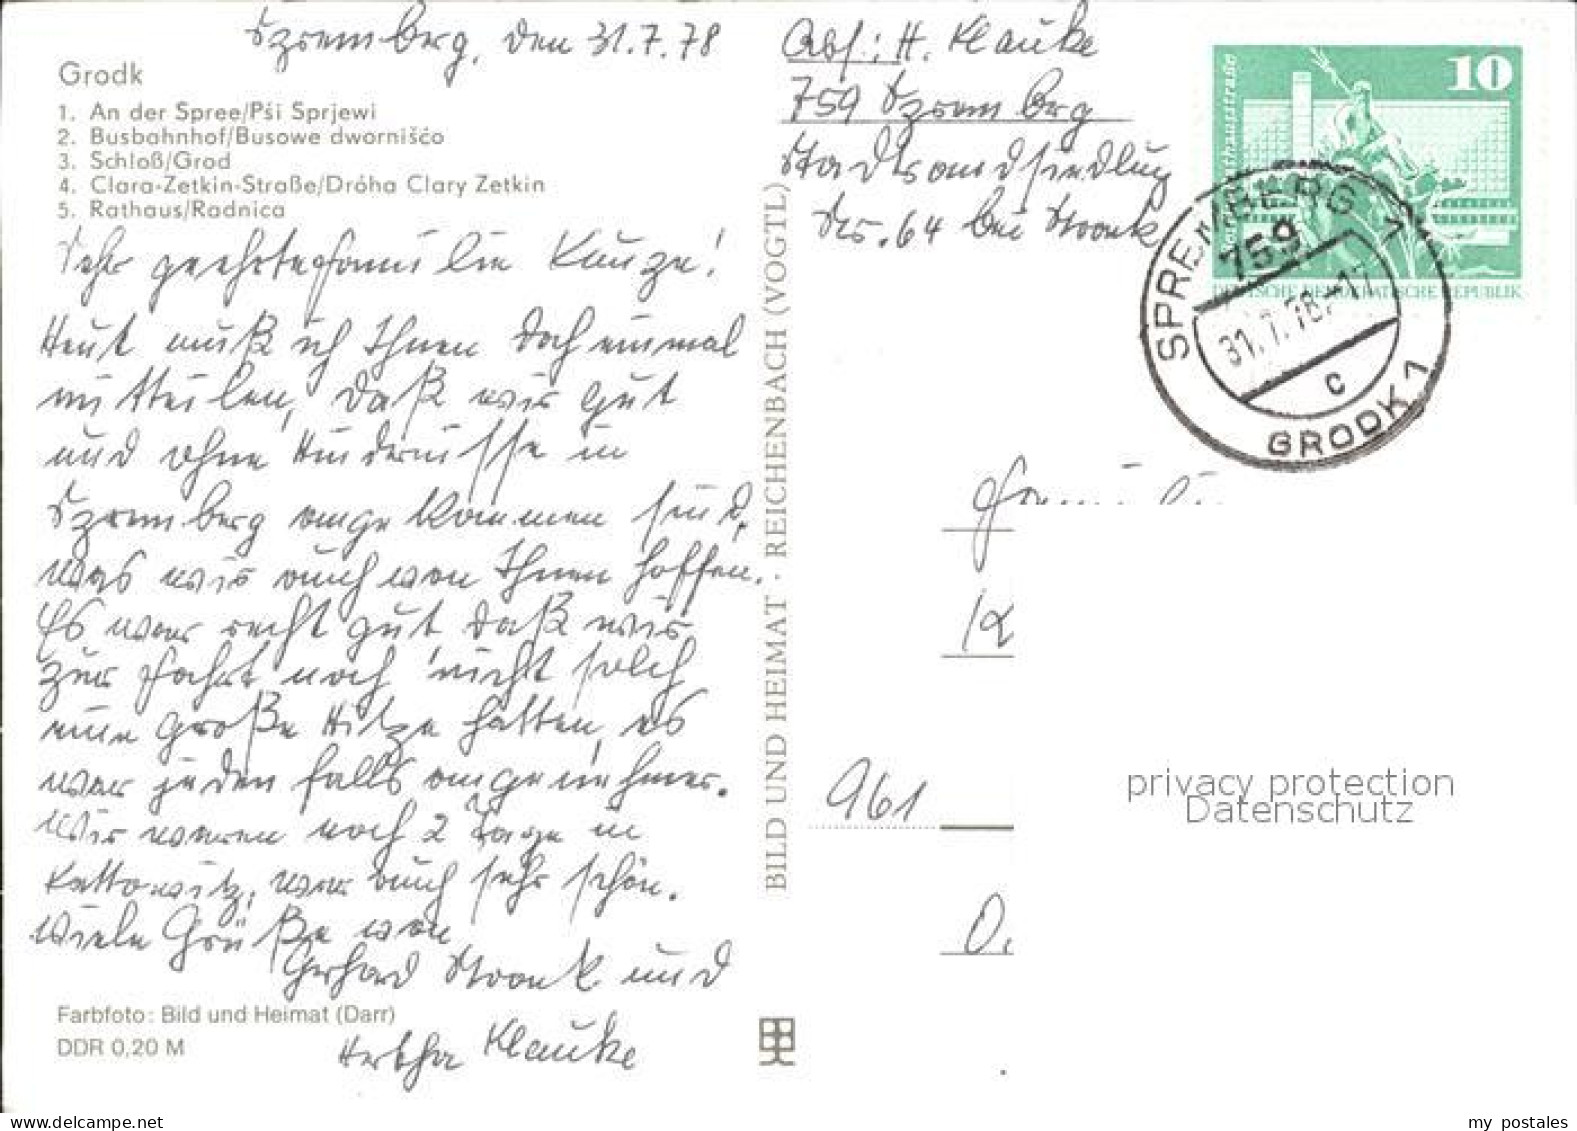 Spremberg, den 31.7.78
Grodk
1. An der Spree/Pśi Sprjewi
2. Busbahnhof/Busowe dwornišćo
3. Schloß/Grod
4. Clara-Zetkin-Straße/Dróha Clary Zetkin
5. Rathaus/Radnica
Sehr geehrte Familie Kauze!
Heut muß ich Ihnen doch einmal
mitteilen, daß wir gut
und ohne Hindernisse in
Spremberg angekommen sind,
was wir auch von Ihnen hoffen.
Es war recht gut, daß wir
zur Fahrt noch nicht solch
eine große Hitze hatten, es
war jedenfalls angenehmer.
Wir waren noch 2 Tage in
Kattowitz, war auch sehr schön.
Viele Grüße von
Gerhard Noack und
Hertha Klauke
Farbfoto: Bild und Heimat (Darr)
DDR 0,20 M
BILD UND HEIMAT · REICHENBACH (VOGTL)
Abs.: H. Klauke
759 Spremberg
Stadtrandsiedlung
Nr. 64 bei Noack
10
DEUTSCHE DEMOKRATISCHE REPUBLIK
SPREMBERG 1
759
31.7.78.-17
c
GRODK 1
Famili
K
961
O.
privacy protection
Datenschutz
my postales